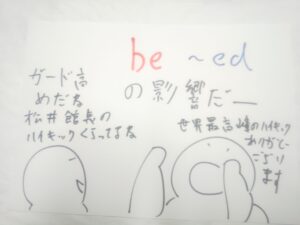 be ~ed
の影響だー
ガード高
めだな
松井館長の
ハイキックくらってるな
世界最高峰のハイキック
ありがとー
ござい
ます